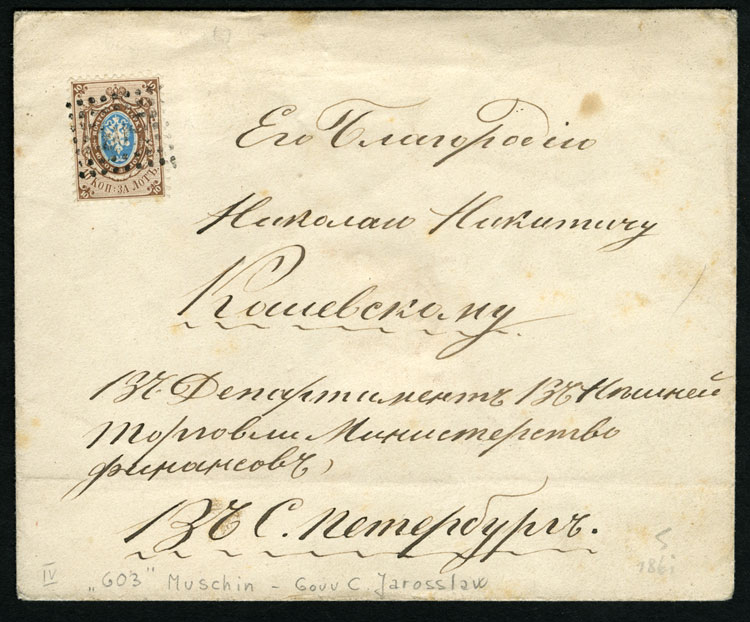 10 10
КОП: ЗА ЛОТЪ
Его Благородiю
Николаю Никитичу
Кошевскому
Въ Департаментъ Внѣшней
Торговли Министерство
финансовъ,
Въ С. Петербургъ.
IV „603" Muschin - Gouv C. Jarosslaw
186i